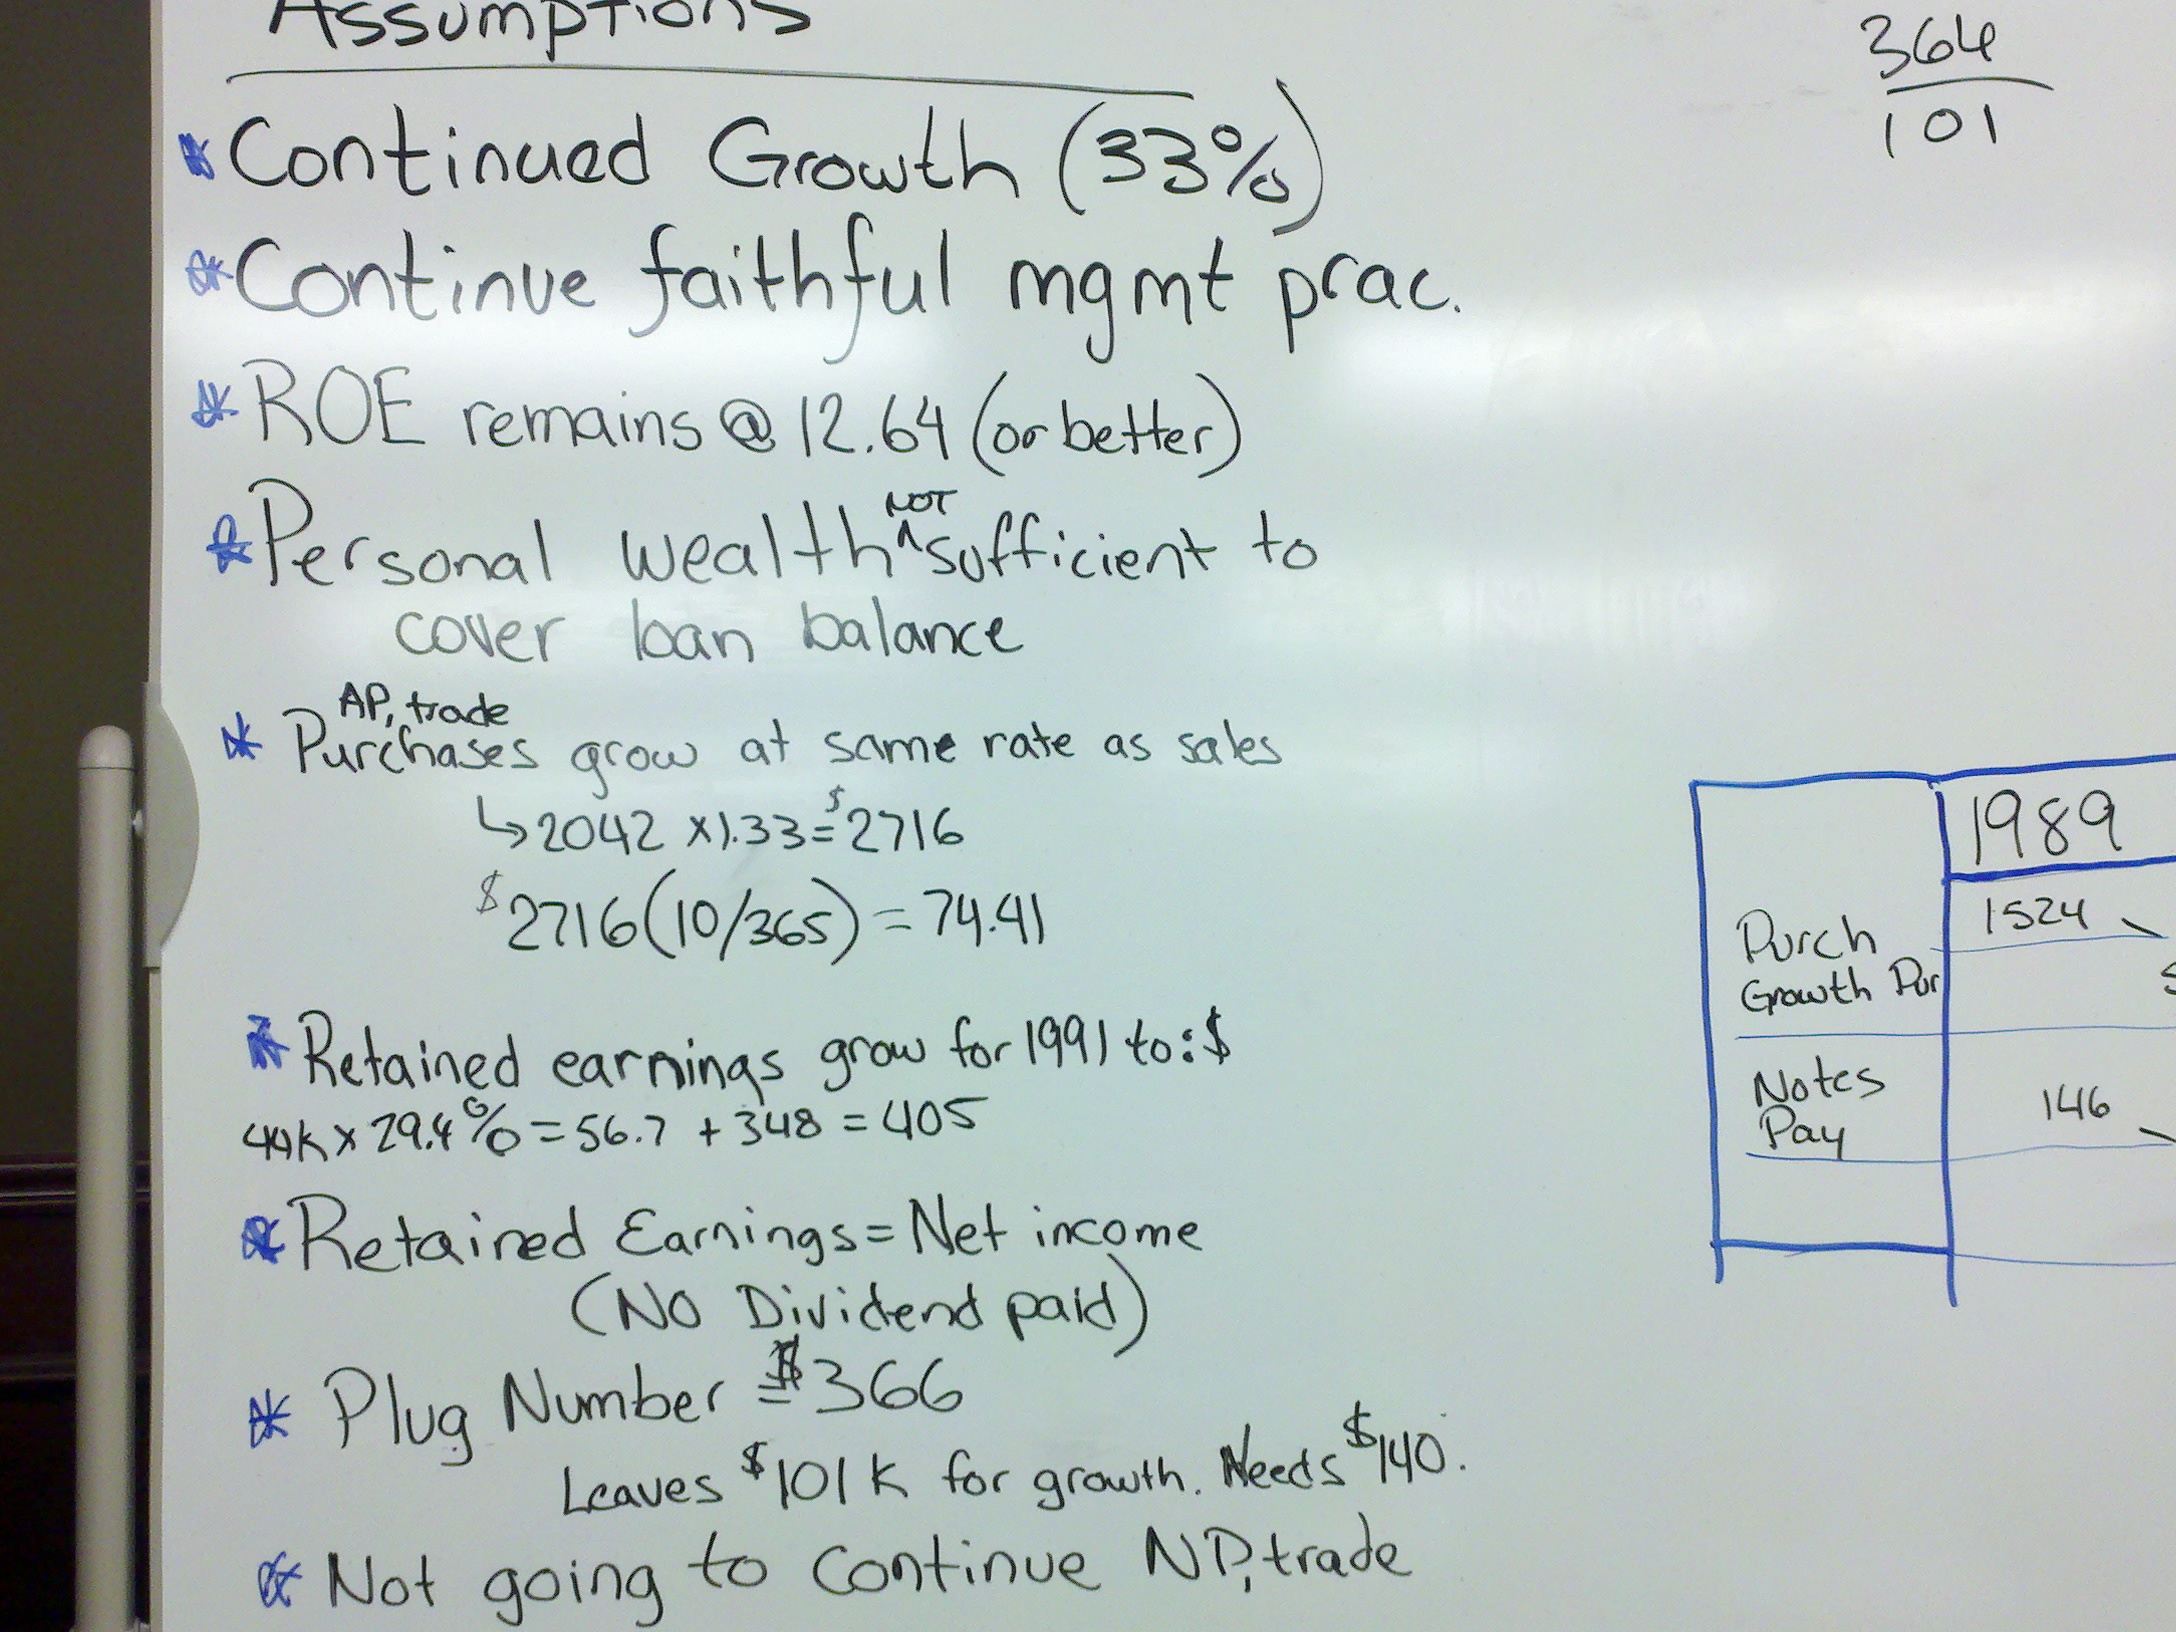 Assumptions
* Continued Growth (33%)
* Continue faithful mgmt prac.
* ROE remains @ 12.64 (or better)
* Personal wealth ^NOT sufficient to
cover loan balance
AP, trade
* Purchases grow at same rate as sales
↳ 2042 x 1.33 = $2716
$2716 (10/365) = 74.41
* Retained earnings grow for 1991 to: $
44K x 29.4% = 56.7 + 348 = 405
* Retained Earnings = Net income
(No Dividend paid)
* Plug Number = $366
Leaves $101K for growth. Needs $140.
* Not going to continue NP, trade
364
101
1989
Purch 1524
Growth Pur
Notes
Pay 146